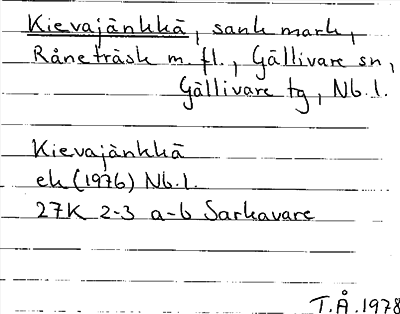 Kievajänkkä, sank mark,
Råneträsk m. fl., Gällivare sn,
Gällivare tg, Nb. l.
Kievajänkkä
ek (1976) Nb. l.
27K 2-3 a-b Sarkavare
T.Å. 1978